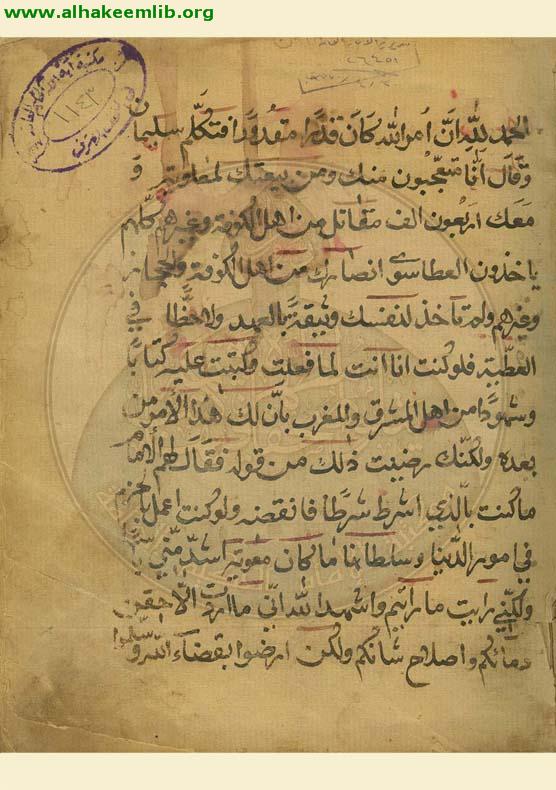 www.alhakeemlib.org
١١٤٣
الحمد لله انّ امر الله كان قدرا مقدورا فتكلّم سليمان
وقال انّا متعجّبون منك ومن بيعتك لمعاوية و
معك اربعون الف مقاتل من اهل الكوفة وغيرهم كلّهم
ياخذون العطا سوى انصارك من اهل الكوفة والحجاز
وغيرهم ولم تآخذ لنفسك وثيقة بالعهد ولا حظّا في
العطّية فلو كنت انا انت لما فعلت وكتبت عليه كتابا
وشهودا من اهل المشرق والمغرب بأنّ لك هذا الأمر من
بعده ولكنّك رضيت ذلك من قوله فقال لهم الإمام
ما كنت بالّذي اشرط شرطا فانقضه ولو كنت اعمل بالحزم
في امور الدّنيا وسلطانها ما كان معوية اشدّ منّي
ولكنّي رايت ما رايتم واشهد الله انّي ما اردت الّا حقن
دمائكم واصلاح شانكم ولكن ارضوا بقضآء الله وسلّموا